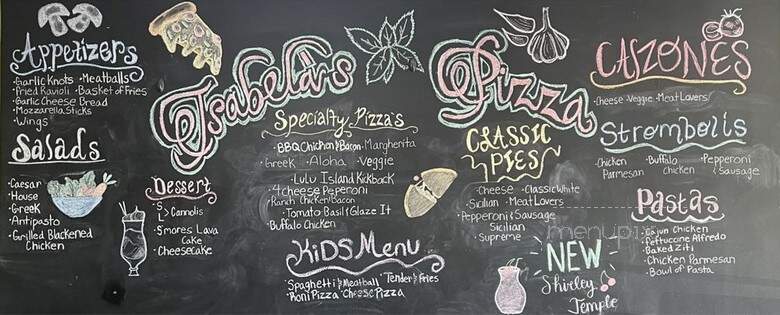 Appetizers
·Garlic Knots ·Meatballs
·Fried Ravioli ·Basket of Fries
·Garlic Cheese Bread
·Mozzarella Sticks
·Wings
Salads
·Caesar
·House
·Greek
·Antipasto
·Grilled Blackened
Chicken
Dessert
·Cannolis
·S'mores Lava
Cake
·Cheesecake
Isabela's Pizza
Specialty Pizza's
·BBQ Chicken & Bacon ·Margherita
·Greek ·Aloha ·Veggie
·Lulu Island Kickback
·4 cheese Peperoni
·Ranch Chicken/Bacon
·Tomato Basil & Glaze It
·Buffalo Chicken
KiDS Menu
·Spaghetti & Meatball ·Tender & Fries
·Roni Pizza ·Cheese Pizza
CLASSIC
PIES
·Cheese ·Classic White
·Sicilian ·Meat Lovers
·Pepperoni & Sausage
Sicilian
·Supreme
NEW
Shirley
Temple
CALZONES
·Cheese ·Veggie ·Meat Lovers
Strombolis
·Chicken
Parmesan
·Buffalo
Chicken
·Pepperoni
& Sausage
Pastas
·Cajun Chicken
·Fettuccine Alfredo
·Baked Ziti
·Chicken Parmesan
·Bowl of Pasta
menupix